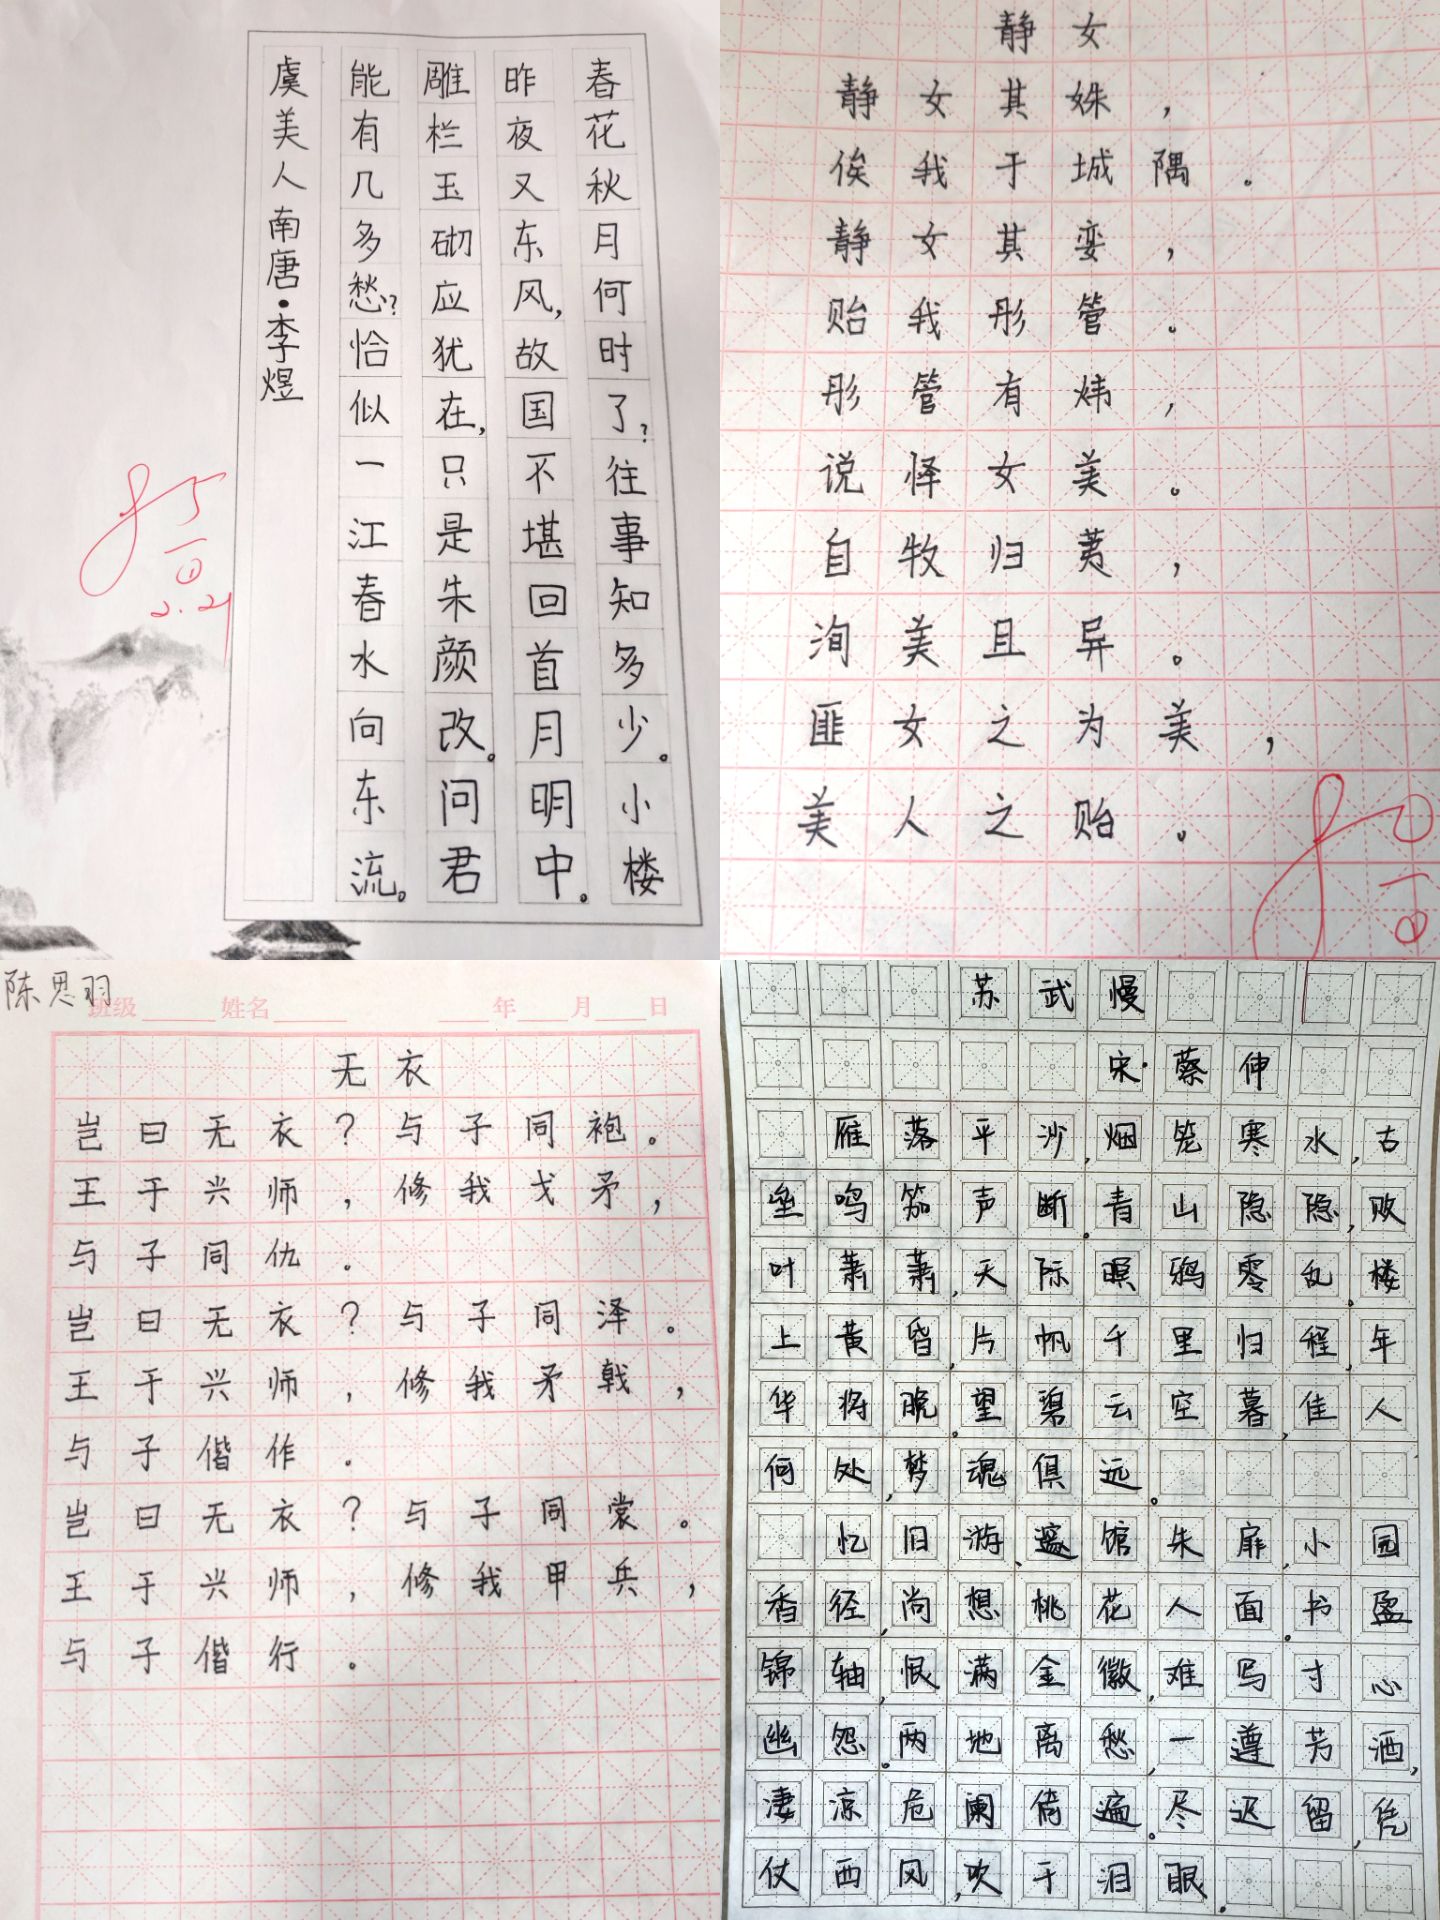 春花秋月何时了?往事知多少。小楼
昨夜又东风,故国不堪回首月明中。
雕栏玉砌应犹在,只是朱颜改。问君
能有几多愁?恰似一江春水向东流。
虞美人南唐·李煜
2.21
静女
静女其姝,
俟我于城隅。
静女其娈,
贻我彤管。
彤管有炜,
说怿女美。
自牧归荑,
洵美且异。
匪女之为美,
美人之贻。
陈思羽
班级 姓名 年 月 日
无衣
岂曰无衣?与子同袍。
王于兴师,修我戈矛,
与子同仇.
岂曰无衣?与子同泽。
王于兴师,修我矛戟,
与子偕作.
岂曰无衣?与子同裳。
王于兴师,修我甲兵,
与子偕行。
苏武慢
宋·蔡伸
雁落平沙,烟笼寒水,古
垒鸣笳声断。青山隐隐,败
叶萧萧,天际暝鸦零乱。楼
上黄昏,片帆千里归程,年
华将晚。望碧云空暮,佳人
何处,梦魂俱远。
忆旧游、邃馆朱扉,小园
香径,尚想桃花人面。书盈
锦轴,恨满金徽,难写寸心
幽怨。两地离愁,一遵芳酒,
凄凉危阑倚遍。尽迟留,凭
仗西风,吹干泪眼.